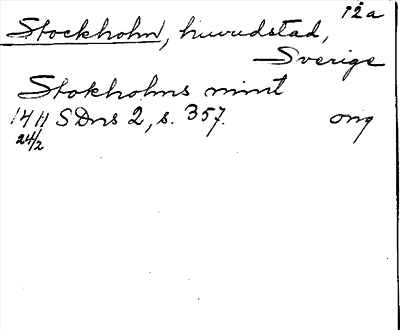 12a
Stockholm, huvudstad,
Sverige
Stokholms mint
1411 SDns 2, s. 357. orig
24/2